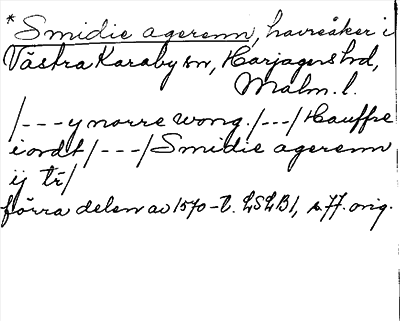 *Smidie agerenn, havreåker i
Västra Karaby sn, Harjagers hd,
Malm. l.
/---y norre wong./---/ Hauffre
iordt/---/Smidie agerenn
ij tr/
förra delen av 1570-t. LSLB1, s. 77. orig.